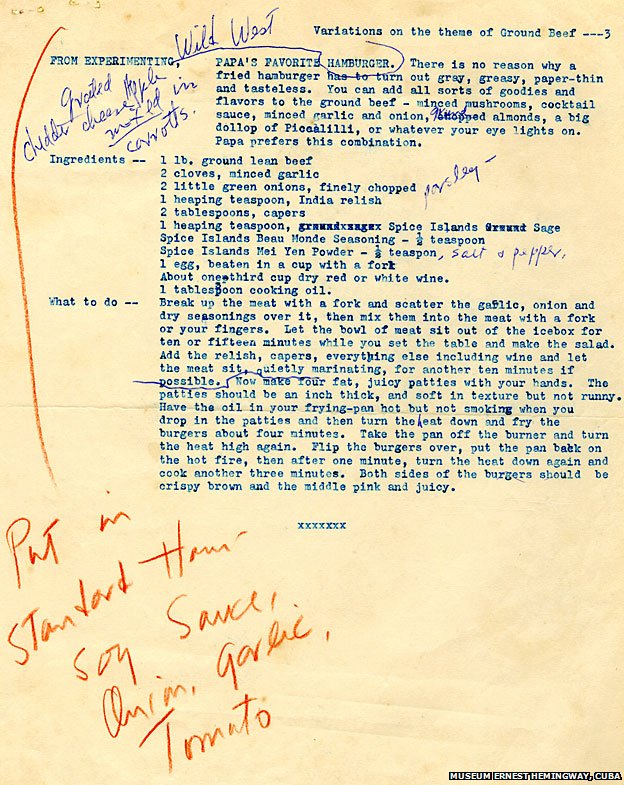 Variations on the theme of Ground Beef ---3
Wild West
FROM EXPERIMENTING, PAPA'S FAVORITE HAMBURGER. There is no reason why a
fried hamburger has to turn out gray, greasy, paper-thin
and tasteless. You can add all sorts of goodies and
flavors to the ground beef - minced mushrooms, cocktail
sauce, minced garlic and onion, chopped almonds, a big
dollop of Piccalilli, or whatever your eye lights on.
Papa prefers this combination.
grated apple
chedder cheese
mixed in
carrotts.
Ingredients -- 1 lb. ground lean beef
2 cloves, minced garlic
2 little green onions, finely chopped parsley -
1 heaping teaspoon, India relish
2 tablespoons, capers
1 heaping teaspoon, Spice Islands Sage
Spice Islands Beau Monde Seasoning - ½ teaspoon
Spice Islands Mei Yen Powder - ½ teaspon, salt & pepper,
1 egg, beaten in a cup with a fork
About one-third cup dry red or white wine.
1 tablespoon cooking oil.
What to do -- Break up the meat with a fork and scatter the garlic, onion and
dry seasonings over it, then mix them into the meat with a fork
or your fingers. Let the bowl of meat sit out of the icebox for
ten or fifteen minutes while you set the table and make the salad.
Add the relish, capers, everything else including wine and let
the meat sit, quietly marinating, for another ten minutes if
possible. Now make four fat, juicy patties with your hands. The
patties should be an inch thick, and soft in texture but not runny.
Have the oil in your frying-pan hot but not smoking when you
drop in the patties and then turn the heat down and fry the
burgers about four minutes. Take the pan off the burner and turn
the heat high again. Flip the burgers over, put the pan back on
the hot fire, then after one minute, turn the heat down again and
cook another three minutes. Both sides of the burgers should be
crispy brown and the middle pink and juicy.
xxxxxxx
Put in
Standard Ham-
Soy Sauce,
Onion, Garlic,
Tomato
MUSEUM ERNEST HEMINGWAY, CUBA